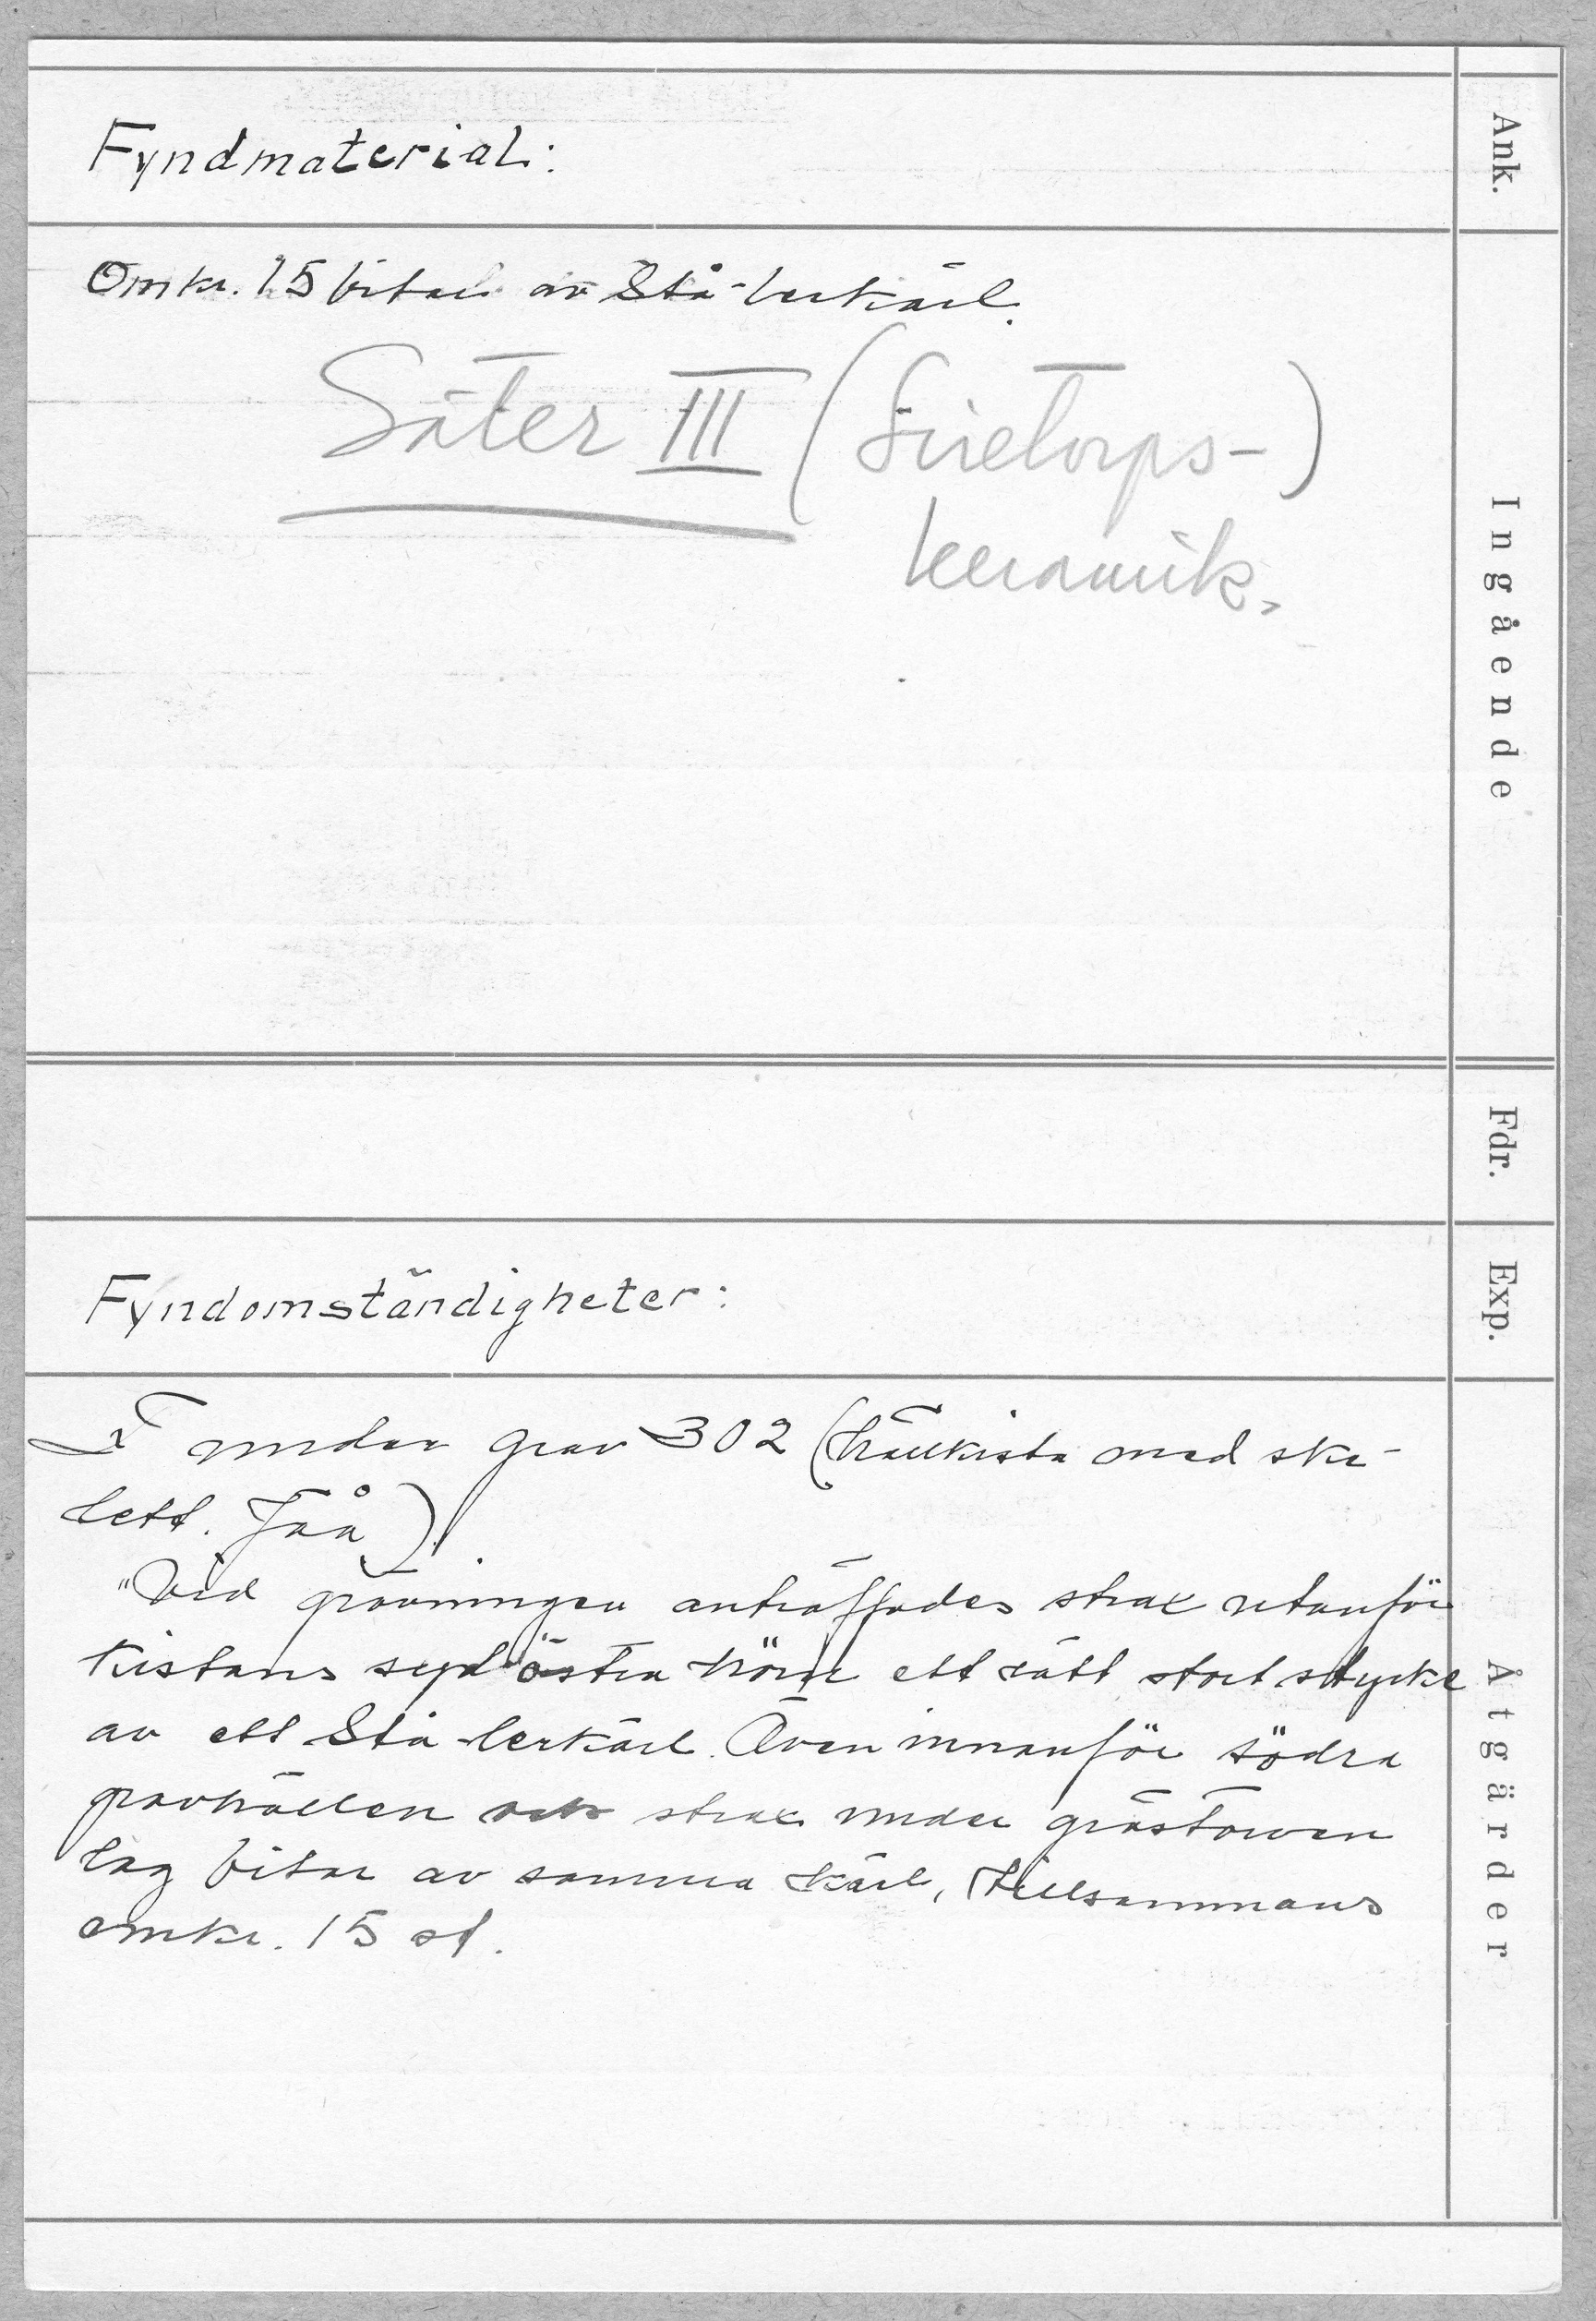 Fyndmaterial:
Omkr. 15 bitar av Stå-lerkärl.
Säter III (Siretorps-)
keramik.
I under grav 302 (hällkista med ske-
lett. Jåå)
"Vid grävningen anträffades strax utanför
kistans syd-östra hörn ett rätt stort stycke
av ett Stå-lerkärl. Även innanför södra
gravhällen och strax under grästorven
låg bitar av samma kärl, tillsammans
omkr. 15 st.
Ank.
Ingående
Fdr.
Exp.
Åtgärder